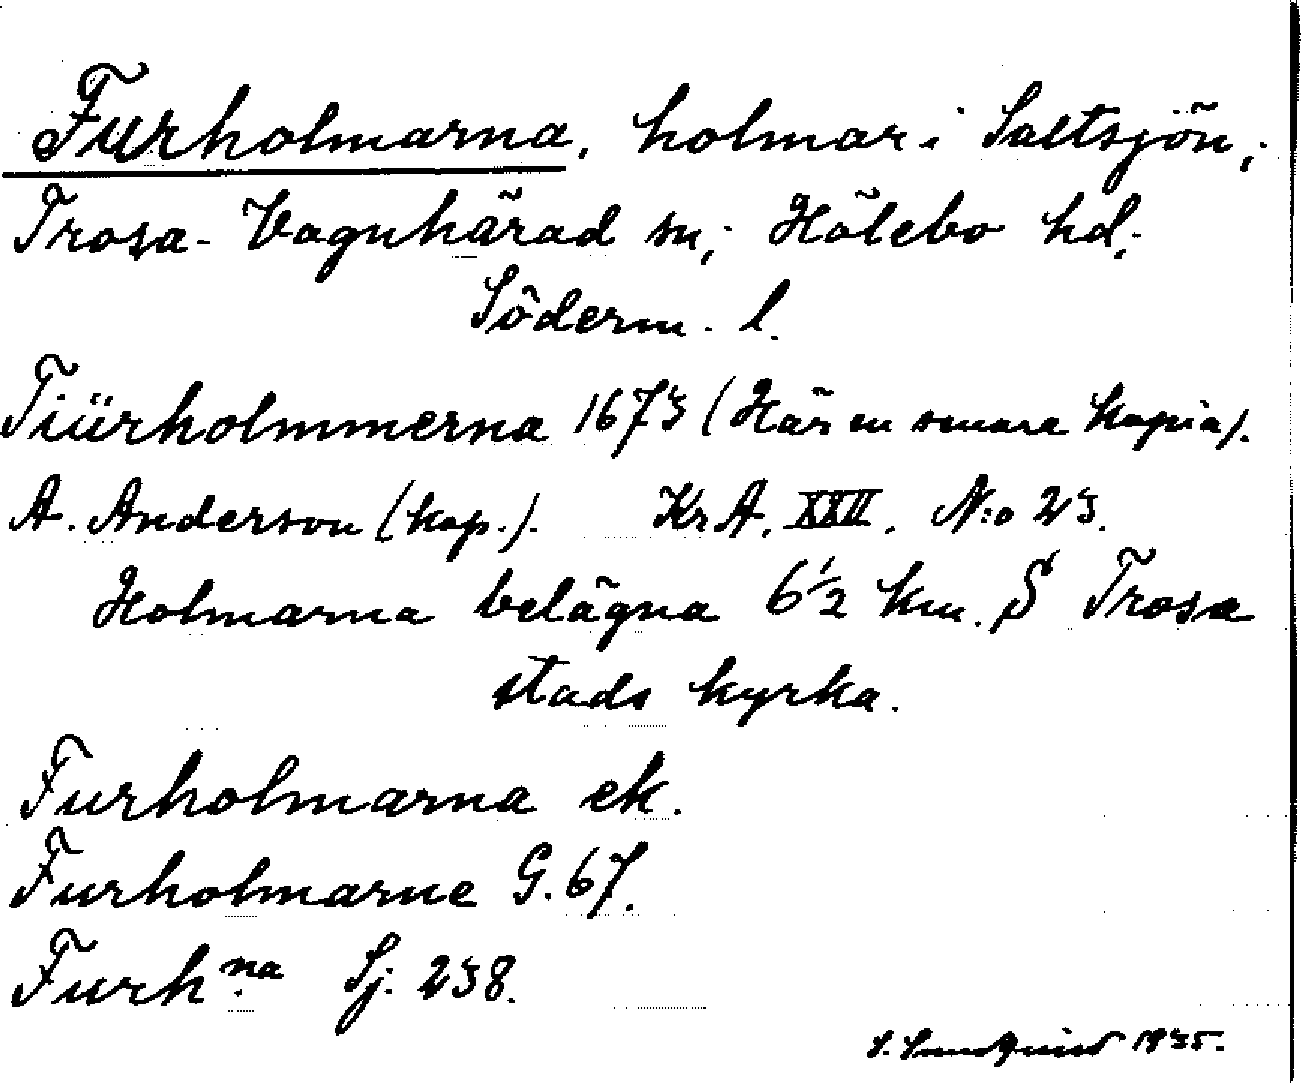 Furholmarna, holmar i Saltsjön,
Trosa-Vagnhärad sn, Hölebo hd,
Söderm. l.
Tiürholmmerna 1673 (Här en senare kopia).
A. Anderson (kop.). Kr A. XXII. N:o 23.
Holmarna belägna 6 1/2 km. S Trosa
stads kyrka.
Furholmarna ek.
Furholmarne G. 67.
Furh:na Sj. 238.
S. 1935.